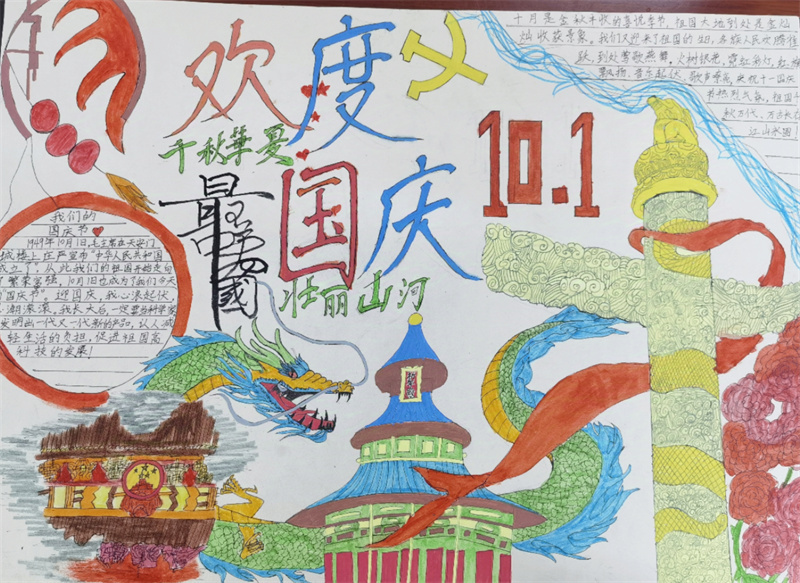 欢度
国庆
千秋華夏
最中國
壮丽山河
10.1
十月是金秋丰收的喜悦季节,祖国大地到处是金灿
灿收获景象。我们又迎来了祖国的生日,各族人民欢腾雀
跃,到处莺歌燕舞,火树银花,霓虹
音乐起伏,歌声嘹亮,庆祝十一国庆
节热烈气氛,祖国千
秋万代,万古长
江山永固!
我们的
国庆节
1949年10月1日,毛主席在天安门
城楼上庄严宣布"中华人民共和国
成立了",从此我们的祖国开始走向
了繁荣富强,10月1日也成为了我们今天
的"国庆节"。迎国庆,我心潮起伏,
潮滚滚,我长大后,一定要当科学家
发明出一代又一代新的产品,让人减
轻生活的负担,促进祖国高
科技的发展!